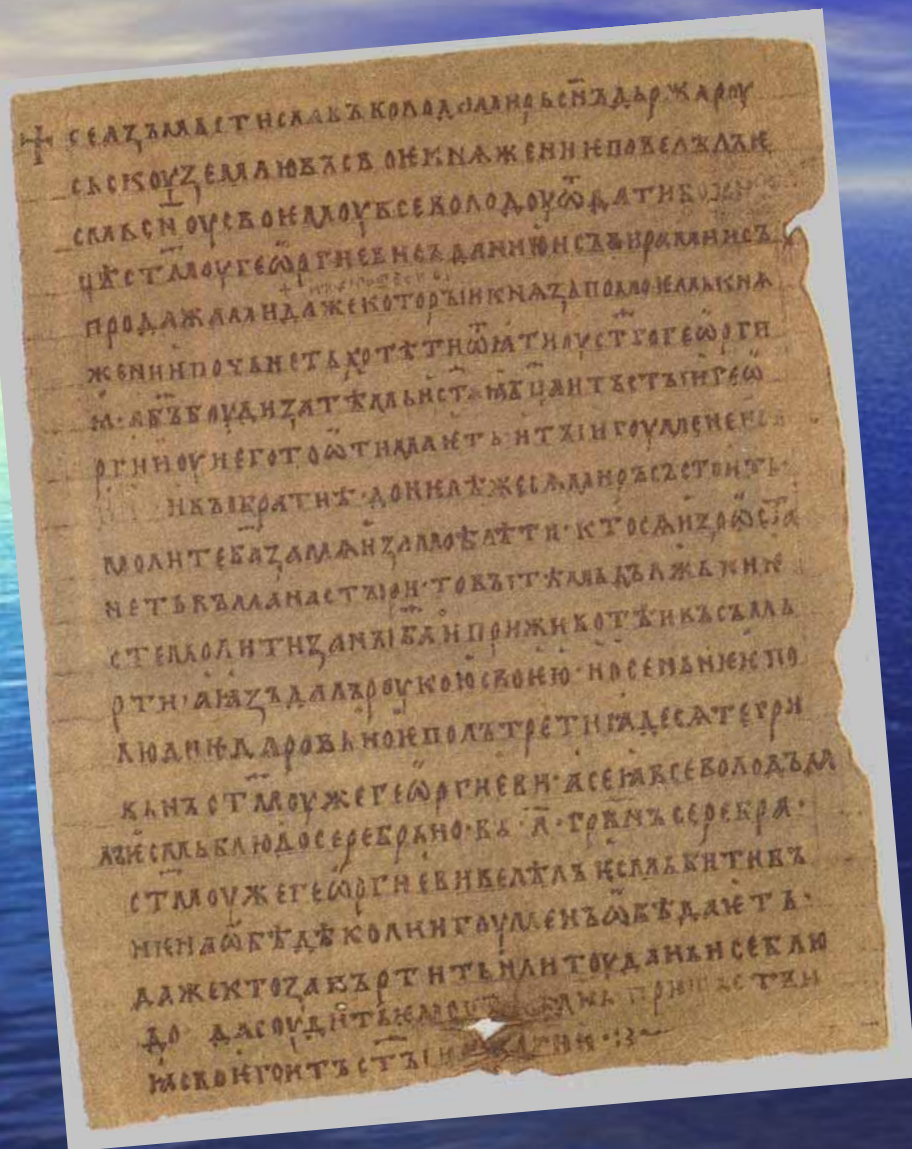 ✝ се азъ мьстиславъ володимирь с҃нъ дьржа роу
сьскоу землю въ своѥ кнѧжениѥ повелѣлъ ѥ
смь с҃ноу своѥмоу всеволодоу ѿдати
цѣ с҃тмоу геѡргиеви съ данию и съ вирами и съ
продажами даже которыи кнѧзь по моѥмь кнѧ
жении почьнеть хотѣти ѿѧти оу с҃тго геѡрги
ꙗ · а б҃ъ боуди за тѣмь и с҃таꙗ б҃ца и тъ с҃тыи геѡ
ргии оу него то ѿтимаѥть · и ты игоумене
и вы братиѣ · донелѣже сѧ миръ състоить ·
молите б҃а за мѧ и за моѣ дѣти · кто сѧ изоѡста
неть въ манастыри · то вы тѣмь дължьни ѥ
сте молити за ны б҃а и при животѣ и въ съмь
рти · а ꙗзъ далъ роукою своѥю · и осеньнѥѥ по
людиѥ даровьноѥ полътретиꙗдесѧте гри
вьнъ с҃тмоу же геѡргиеви · а се ꙗ всеволодъ да
лъ ѥсмь блюдо серебрьно · въ · л҃ · грв҃нъ серебра ·
с҃тмоу же геѡргиеви велѣлъ ѥсмь бити въ
нѥ на ѡбѣдѣ коли игоуменъ ѡбѣдаѥть ·
даже кто запъртить или тоу дань и се блю
до да соудить ѥмоу
ꙗ своѥго и тъ с҃тыи